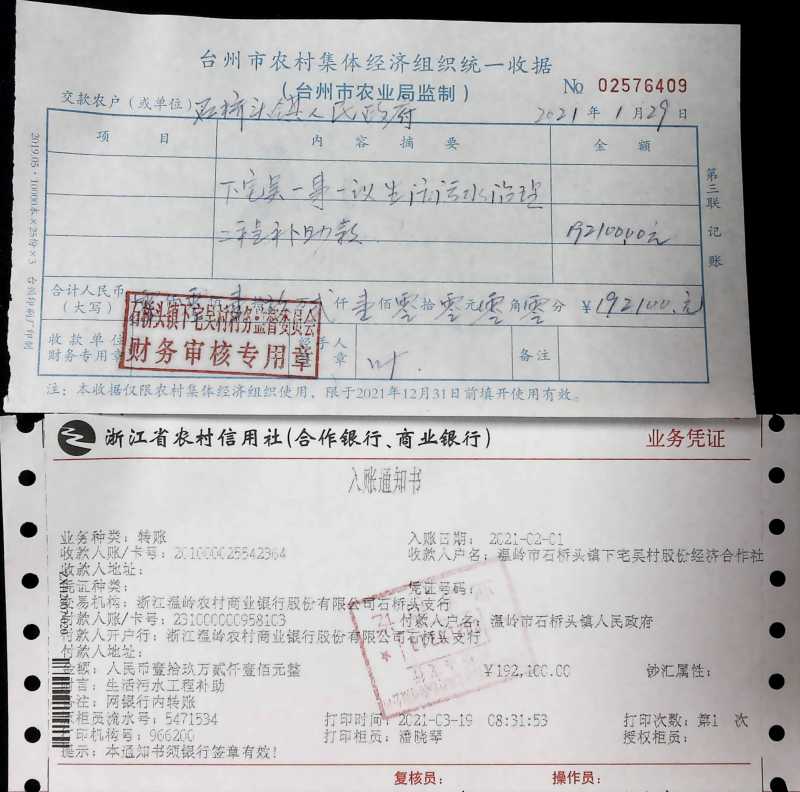 台州市农村集体经济组织统一收据
(台州市农业局监制)
No 02576409
交款农户(或单位) 石桥头镇人民政府 2021年1月29日
项目 内容摘要 金额
下宅吴一事一议生活污水治理
工程补助款 192100.00元
合计人民币
(大写) 仟壹佰零拾零元零角零分 ¥192100.元
石桥头镇下宅吴村村务监督委员会
财务审核专用章
收款单位
财务专用章
经手人
章
备注
注:本收据仅限农村集体经济组织使用,限于2021年12月31日前填开使用有效。
第三联 记账
2019.05·10000本×25份×3 台州
浙江省农村信用社(合作银行、商业银行) 业务凭证
入账通知书
业务种类:转账 入账日期: 2021-02-01
收款人账/卡号:201000025542364 收款人户名:温岭市石桥头镇下宅吴村股份经济合作社
收款人地址:
凭证种类: 凭证号码:
交易机构:浙江温岭农村商业银行股份有限公司石桥头支行
付款人账/卡号:231000000958103 付款人户名:温岭市石桥头镇人民政府
付款人开户行:浙江温岭农村商业银行股份有限公司石桥头支行
付款人地址:
金额:人民币壹拾玖万贰仟壹佰元整 ¥192,100.00 钞汇属性:
附言:生活污水工程补助
备注:网银行内转账
原柜员流水号:5471534 打印时间:2021-03-19 08:31:53 打印次数:第1 次
打印机构号:966200 打印柜员:潘晓琴 授权柜员:
提示:本通知书须银行签章有效!
复核员: 操作员: